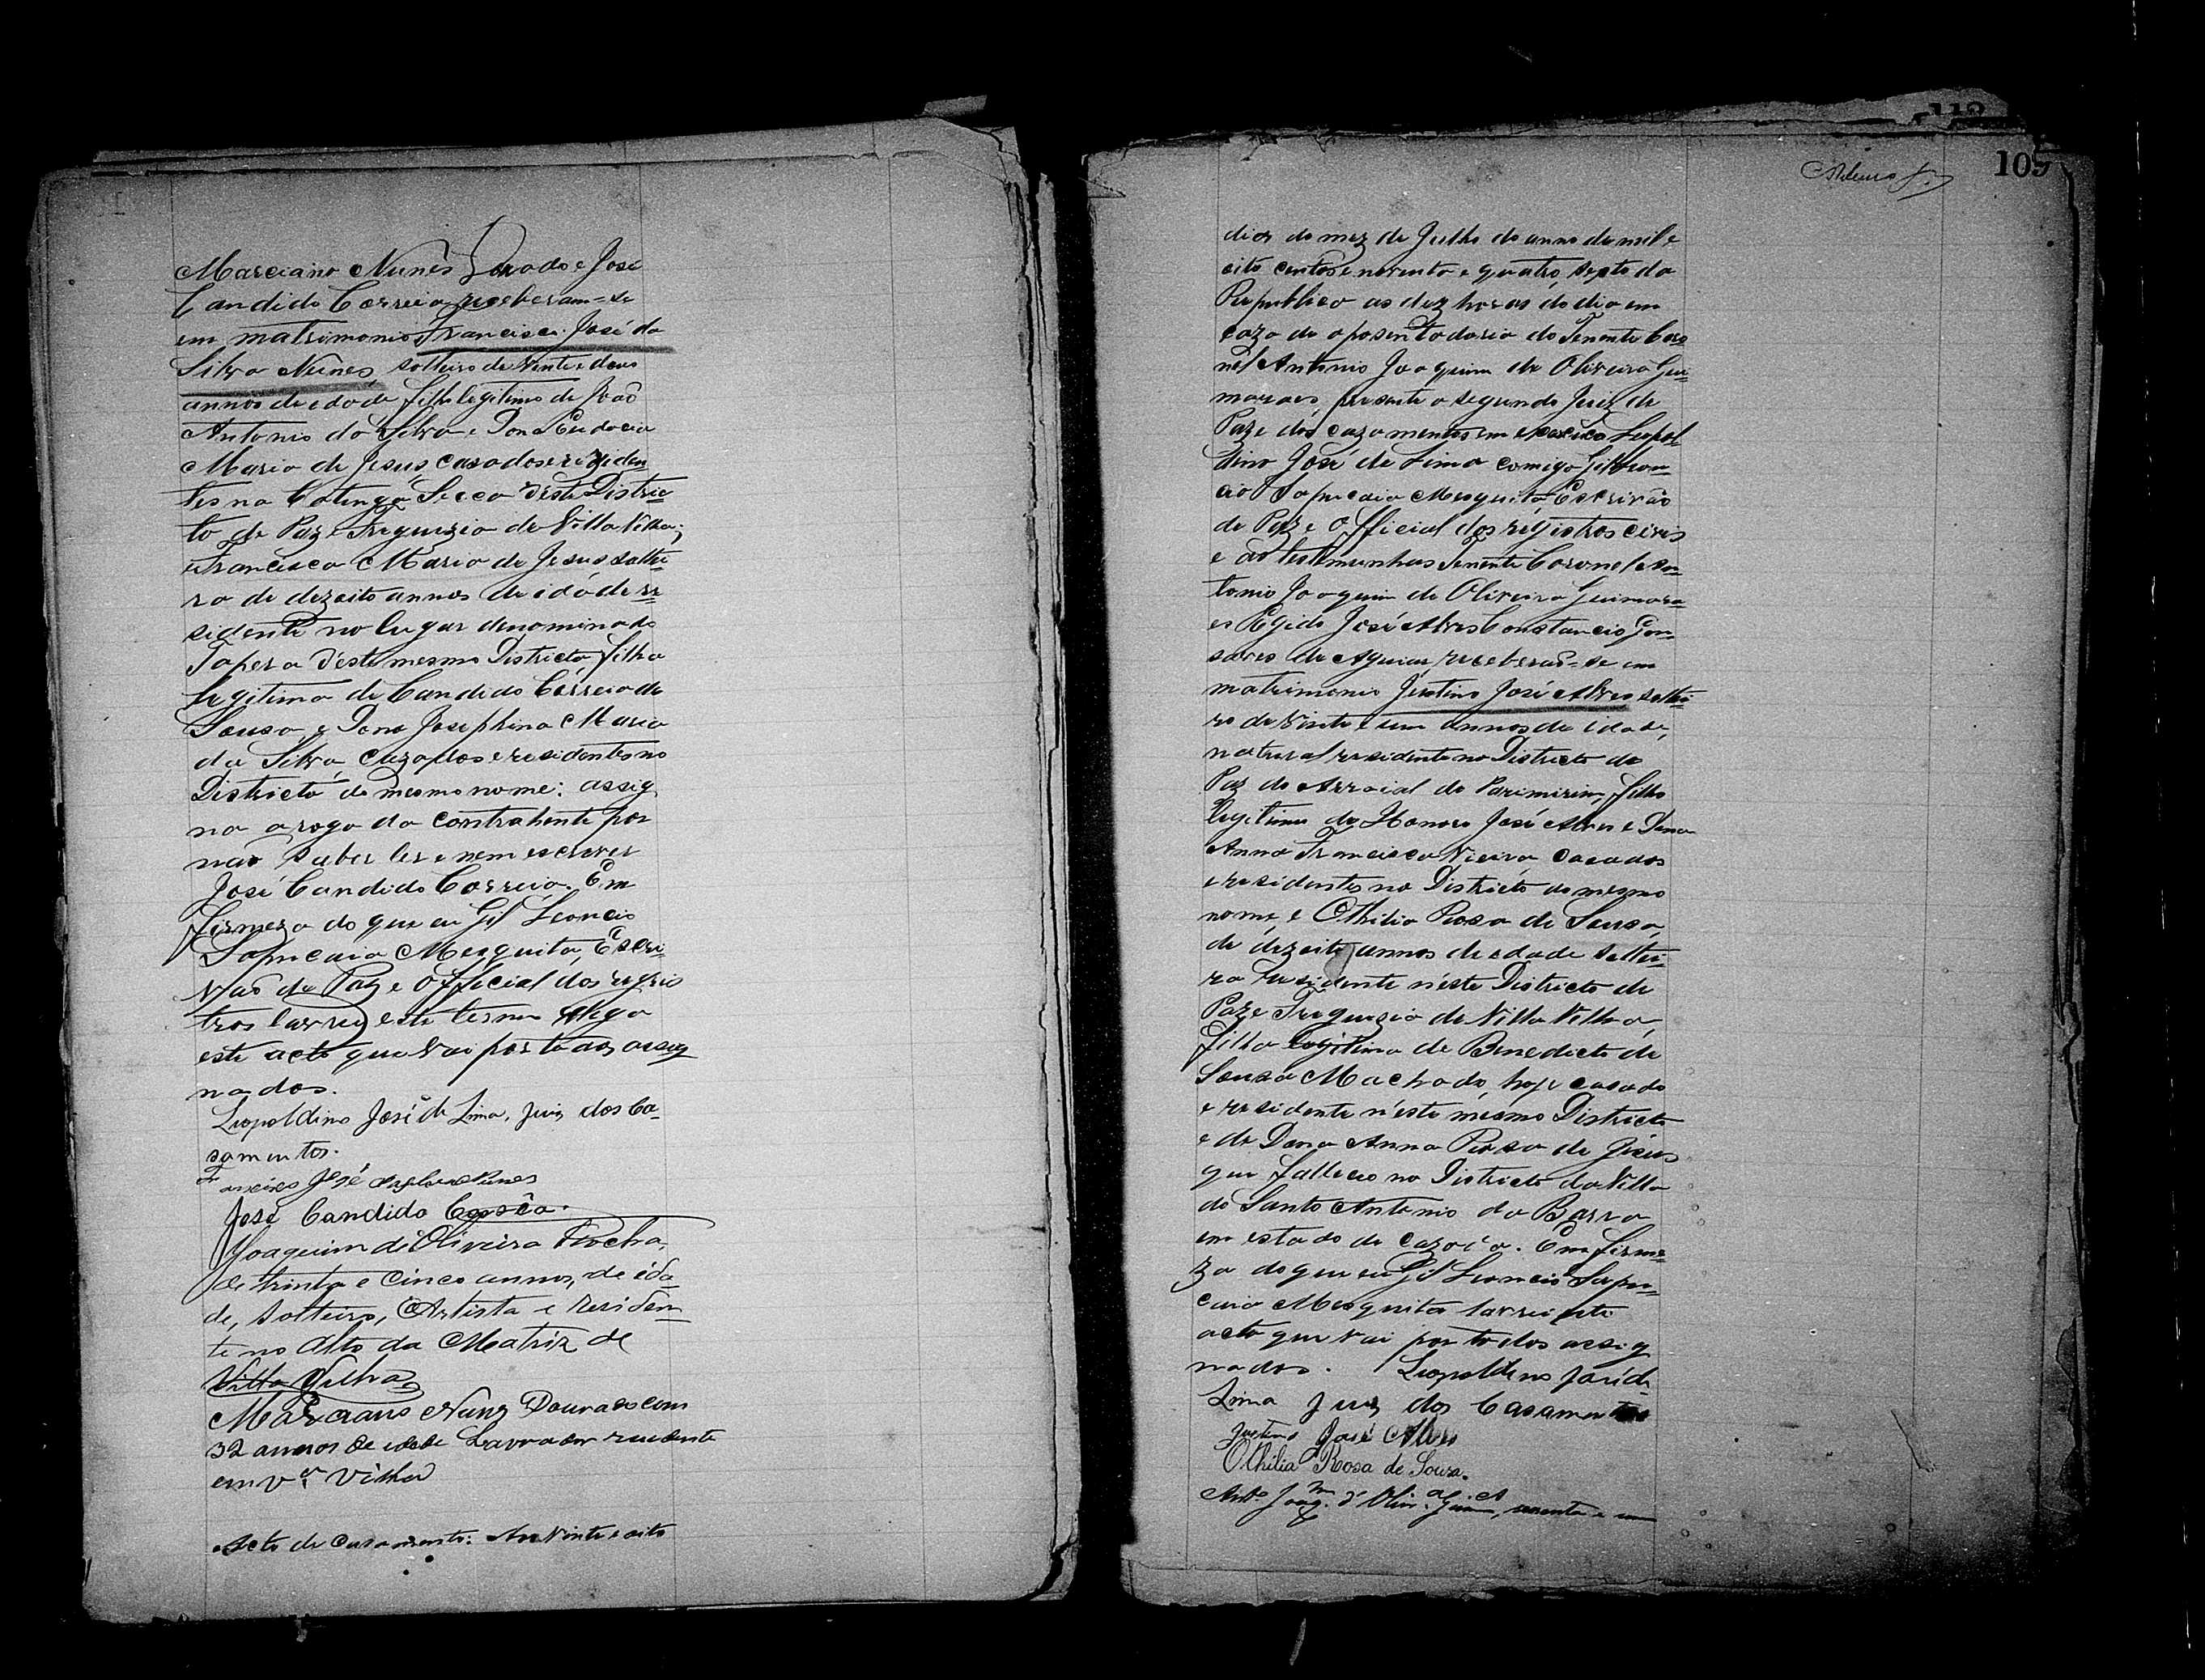 Marciano Nunes Dourado e José
Candido Correia receberam-se
em matrimonio Francisco José da
Silva Nunes, solteiro de vinte e dous
annos de edade filho legitimo de João
Antonio da Silva e Dona Eudocia
Maria de Jesus, casados e residen
tes na Catinga Secca deste Distric
to de Paz e Freguezia de Villa Velha;
e Francisca Maria de Jesus soltei
ra de dezoito annos de idade re
sidente no lugar denominado
Tapera d'este mesmo Districto, filha
legitima de Candido Correia de
Sousa, e Dona Josephina Maria
da Silva, cazados e residentes no
Districto do mesmo nome: assig
na a rogo da contrahente por
não saber ler e nem escrever
José Candido Correia. Em
firmeza do que eu Gil Leoncio
Sapucaia Mesquita, Escri-
vão de Paz e Official dos regis
tros lavrei este termo digo
este acto que vai por todos assig
nados.
Leopoldino José de Lima, juiz dos ca-
samentos.
Francisco José da Silva Nunes
José Candido Corrêa.
Joaquim de Oliveira Rocha,
de trinta e cinco annos, de ida-
de, solteiro, Artista e residen
te no Alto da Matriz de
Villa Velha
Marciano Nunz Dourado com
32 annos de idade Lavrador rezidente
em Vª Velha
Acto de casamento: Aos vinte e oito
Ribeiro Jr.
109
113
dias do mez de Julho do anno de mil e
oito centos e noventa e quatro, sexto da
Republica as dez horas do dia em
caza de aposentadoria do Tenente Coro
nel Antonio Joaquim de Oliveira Gui
maraes, presente o segundo Juiz de
Paz e dos cazamentos em exercicio Leopol
dino José de Lima comigo Gil Leon
cio Sapucaia Mesquita, Escrivão
de Paz e Official dos registros civis
e as testemunhas Tenente Coronel An
tonio Joaquim de Oliveira Guimara
es Egido José Alves Constancio Gon
salves de Aguiar receberão-se em
matrimonio Justino José Alves soltei
ro de vinte e um annos de idade,
natural residente no Districto de
Paz do Arraial do Paramirim, filho
legitimo de Honoro José Alves e Dona
Anna Francisca Vieira casados
e residentes no Districto do mesmo
nome, e Othilia Rosa de Sousa,
de dezoito annos de edade soltei-
ra residente n'este Districto de
Paz e Freguezia de Villa Velha,
filha legitima de Benedicto de
Sousa Machado, hoje casado
e residente n'este mesmo Districto
e de Dona Anna Rosa de Jesus
que falleceo no Districto da Villa
de Santo Antonio da Barra
em estado de cazada. Em firme
za do que eu Gil Leoncio Sapu-
caia Mesquita lavrei este
acto que vai por todos assig
nados. Leopoldino José de
Lima juiz dos Casamentos
Justino José Alves
Othilia Rosa de Souza.
Antº Joaqm d'Olivª Guimes,